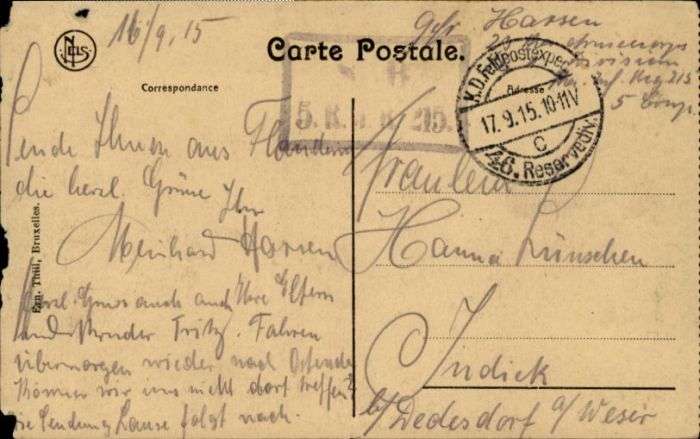 16/9.15
Carte Postale.
Correspondance
Adresse
Gefr. Harsen
Armeecorps
Division
Inf. Reg 215
5 Comp.
S. B.
5. K. R. I. R. 215.
K.D. Feldpostexped.
17.9.15.10-11V
C
46. Reservediv.
NELS
Sende Ihnen aus Flandern
die herzl. Grüsse Ihr
Meinhard Harsen
Herzl. Gruss auch an Ihre Eltern
und Bruder Fritz. Fahren
übermorgen wieder nach Ostende
Können wir uns nicht dort treffen?
Sendung Lause folgt nach.
Ern. Thill, Bruxelles.
Fräulein
Hanna Lünschen
Indiek
b/ Dedesdorf a/Weser